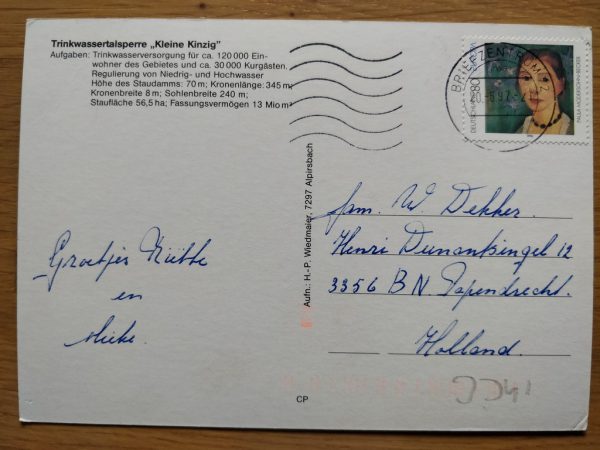 Trinkwassertalsperre „Kleine Kinzig"
Aufgaben: Trinkwasserversorgung für ca. 120 000 Ein-
wohner des Gebietes und ca. 30 000 Kurgästen.
Regulierung von Niedrig- und Hochwasser
Höhe des Staudamms: 70 m; Kronenlänge: 345 m
Kronenbreite 8 m; Sohlenbreite 240 m;
Staufläche 56,5 ha; Fassungsvermögen 13 Mio m³
BRIEFZENTRUM
PAULA MODERSOHN-BECKER
Aufn.: H.-P. Wiedmaier, 7297 Alpirsbach
Groetjes
en
Mieke.
fam. W. Dekker.
Henri Dunantsingel 12
3356 BN. Papendrecht.
Holland.
CP